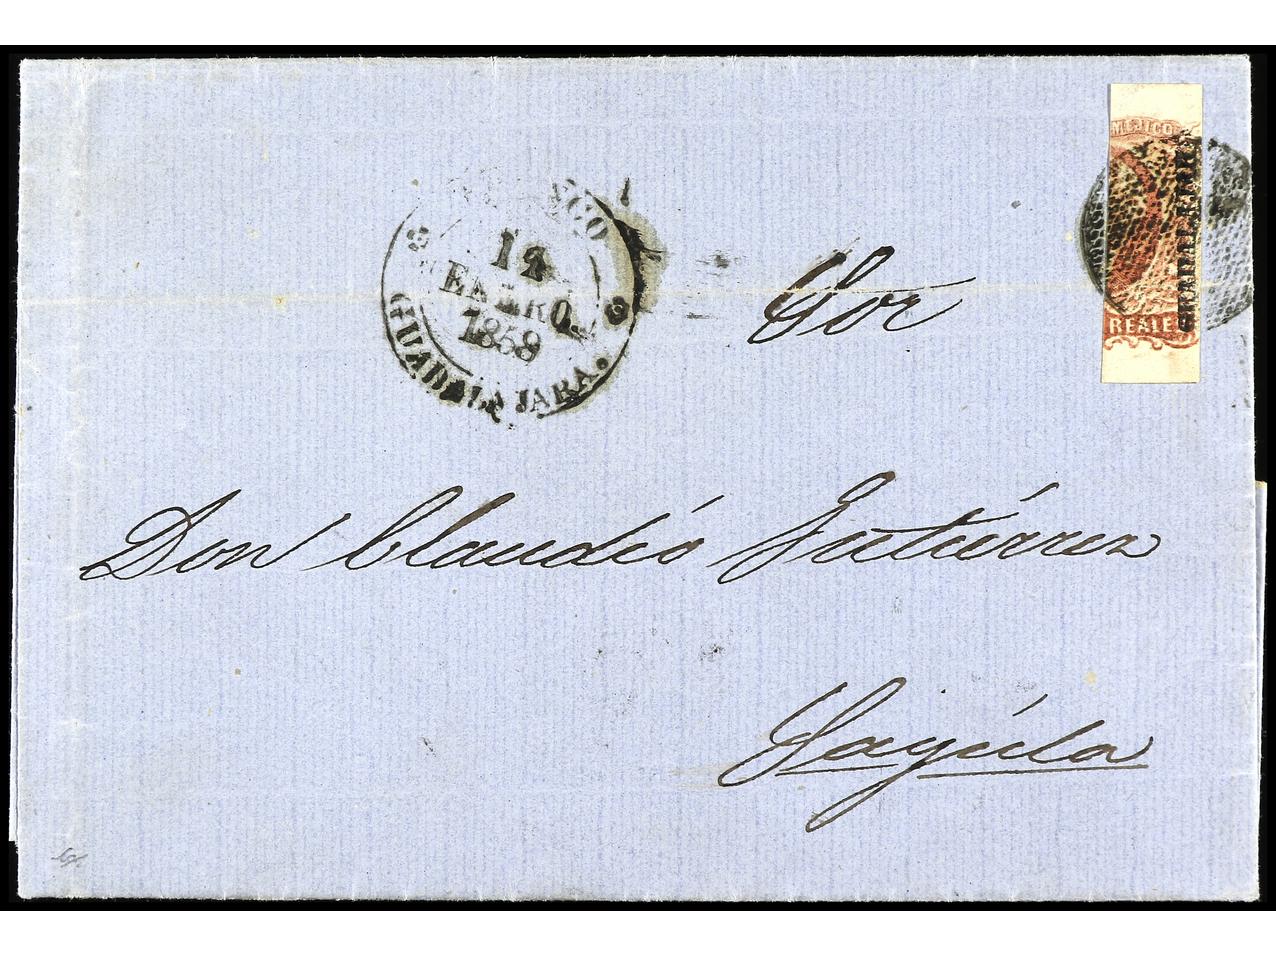 MEJICO
GUADALAJARA
REALE
FRANCO
14
ENERO
1858
GUADALAJARA.
Sor
Don Claudio Gutiérrez
Sayúla